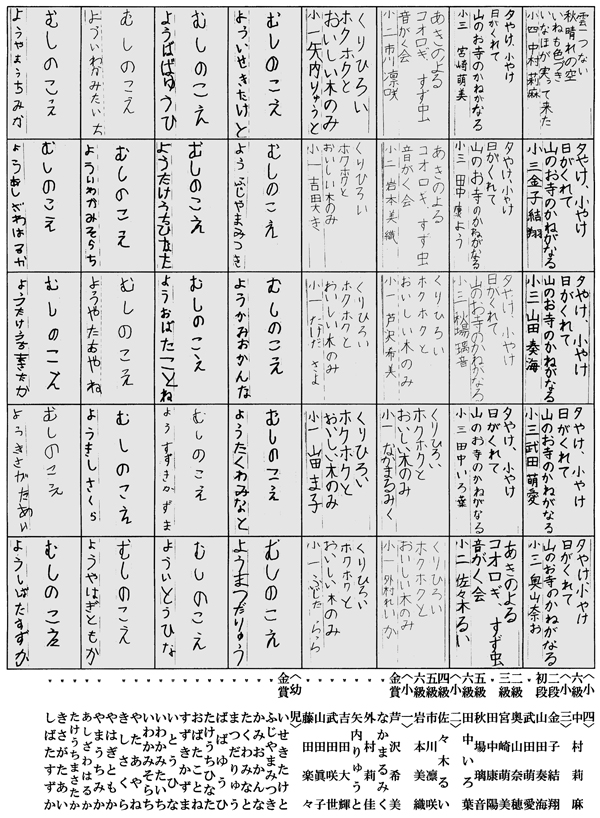 雲一つない
秋晴れの空
いねも色づき
いなほが実って来た
小四 中村莉麻
夕やけ、小やけ
日がくれて
山のお寺のかねがなる
小三 金子結翔
夕やけ、小やけ
日がくれて
山のお寺のかねがなる
小三 山田奏海
夕やけ、小やけ
日がくれて
山のお寺のかねがなる
小三 武田萌愛
夕やけ、小やけ
日がくれて
山のお寺のかねがなる
小三 奥山奈お
夕やけ、小やけ
日がくれて
山のお寺のかねがなる
小三 宮崎萌美
夕やけ、小やけ
日がくれて
山のお寺のかねがなる
小三 田中康よう
夕やけ、小やけ
日がくれて
山のお寺のかねがなる
小三 秋場璃音
夕やけ、小やけ
日がくれて
山のお寺のかねがなる
小三 田中いろ葉
あきのよる
コオロギ、すず虫
音がく会
小二 佐々木るい
あきのよる
コオロギ、すず虫
音がく会
小二 市川凛咲
あきのよる
コオロギ、すず虫
音がく会
小二 岩本美織
くりひろい
ホクホクと
おいしい木のみ
小一 芦沢希美
くりひろい
ホクホクと
おいしい木のみ
小一 なかまるみく
くりひろい
ホクホクと
おいしい木のみ
小一 外村れいか
くりひろい
ホクホクと
おいしい木のみ
小一 矢内りゅうと
くりひろい
ホクホクと
おいしい木のみ
小一 吉田大き
くりひろい
ホクホクと
おいしい木のみ
小一 たけださよ
くりひろい
ホクホクと
おいしい木のみ
小一 山田ま子
くりひろい
ホクホクと
おいしい木のみ
小一 ふじたらら
むしのこえ
よういせきたけと
むしのこえ
ようふじやまみつき
むしのこえ
ようかみおかんな
むしのこえ
ようたくわみなと
むしのこえ
ようまつだりゅう
むしのこえ
ようばばゆうひ
むしのこえ
ようたけうちひなた
むしのこえ
ようおばたことね
むしのこえ
ようすずきかずま
むしのこえ
よういとうひな
むしのこえ
よういわかみたいち
むしのこえ
よういわかみそらち
むしのこえ
ようやたあやね
むしのこえ
ようきしさくら
むしのこえ
ようやはぎともか
むしのこえ
ようやまうちみか
むしのこえ
ようあしざわはるか
むしのこえ
ようたけうちまさたか
むしのこえ
ようきさがたあい
むしのこえ
ようしばたすずか
〈小四〉
六級 中村莉麻
〈小三〉
二段 金子結翔
初段 山田奏海
〃 武田萌愛
二級 奥山奈穂
三級 宮崎萌美
〃 田中康陽
五級 秋場璃音
六級 田中いろ葉
〈小二〉
四級 佐々木るい
五級 市川凛咲
六級 岩本美織
〈小一〉
金賞 芦沢希美
〃 なかまるみく
〃 外村莉佳
〃 矢内りゅうと
〃 吉田大輝
〃 武田咲世
〃 山田眞子
〃 藤田楽々
〈幼児〉
金賞 いせきたけと
〃 ふじやまみつき
〃 かみおかんな
〃 たくわみなと
〃 まつだりゅう
〃 ばばゆうひ
〃 たけうちひなた
〃 おばたことね
〃 すずきかずま
〃 いとうひな
〃 いわかみたいち
〃 いわかみそらち
〃 やたあやね
〃 きしさくら
〃 やはぎともか
〃 やまうちみか
〃 あしざわはるか
〃 たけうちまさたか
〃 きさがたあい
〃 しばたすずか